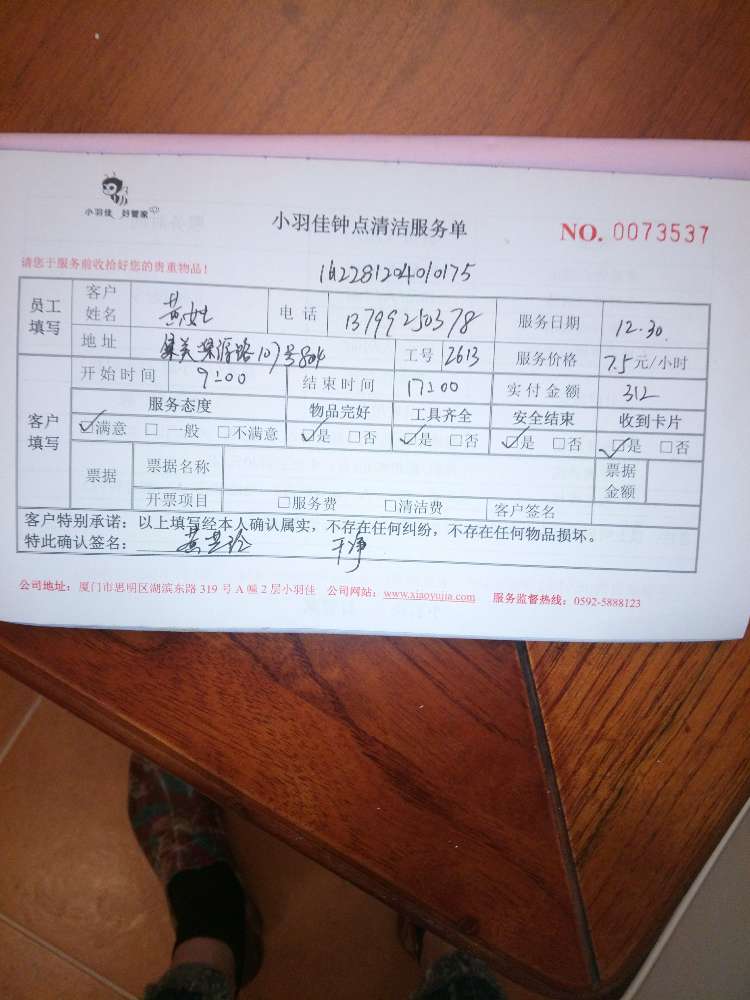 小羽佳 好管家
小羽佳钟点清洁服务单
NO. 0073537
请您于服务前收拾好您的贵重物品!
162281204010175
员工填写 客户姓名 黄女士 电话 13799250378 服务日期 12.30
地址 集美深源路107号804 工号 2613 服务价格 7.5元/小时
客户填写 开始时间 9:00 结束时间 17:00 实付金额 312
服务态度 物品完好 工具齐全 安全结束 收到卡片
☑满意 □一般 □不满意 ☑是 □否 ☑是 □否 ☑是 □否 ☑是 □否
票据 票据名称 票据金额
开票项目 □服务费 □清洁费 客户签名
客户特别承诺:以上填写经本人确认属实,不存在任何纠纷,不存在任何物品损坏。
特此确认签名: 干净
公司地址:厦门市思明区湖滨东路 319 号 A 幢 2 层小羽佳 公司网站:www.xiaoyujia.com 服务监督热线:0592-5888123